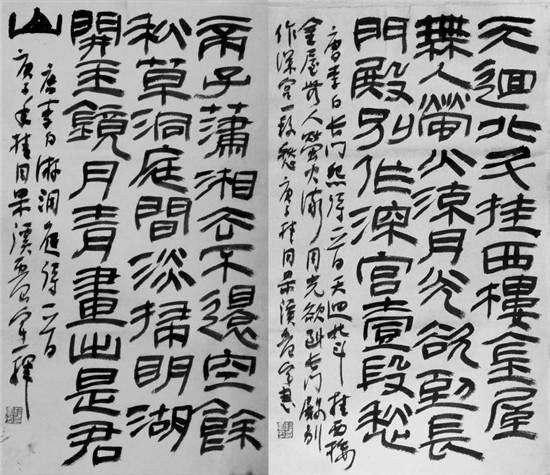 天迴北斗挂西樓金屋
無人螢火流月光欲到長
門殿別作深宮壹段愁
唐李白長門怨得一首天迴北斗挂西樓
金屋無人螢火流月光欲到長門殿別
作深宮一段愁庚子桂月杲溪
帝子瀟湘去不還空餘
秋草洞庭間淡掃明湖
開玉鏡丹青畫出是君
山
唐李白遊洞庭得一首
庚子年桂月杲溪